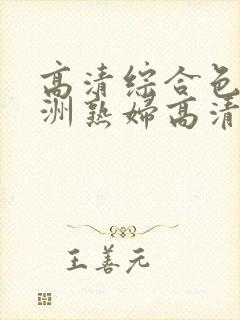 高清综合色
洲熟婦高清
王善元